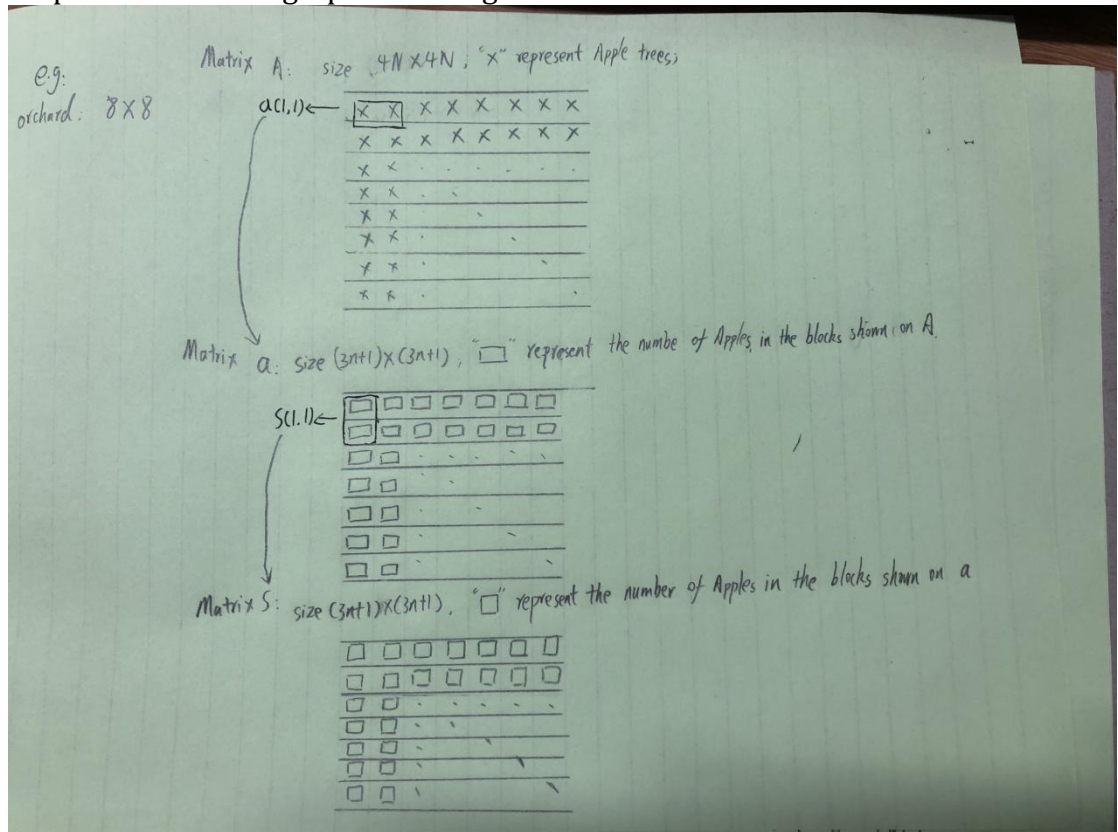 Matrix A: size 4N×4N; "x" represent Apple trees;
e.g:
orchard: 8×8
a(1,1)←
x x x x x x x x
x x x x x x x x
x x . . . . . .
x x . .
x x .
x x . .
x x . .
x x . .
Matrix a: size (3n+1)×(3n+1), "▭" represent the numbe of Apples in the blocks shown on A.
S(1.1)←
Matrix S: size (3n+1)×(3n+1). "□" represent the number of Apples in the blocks shown on a